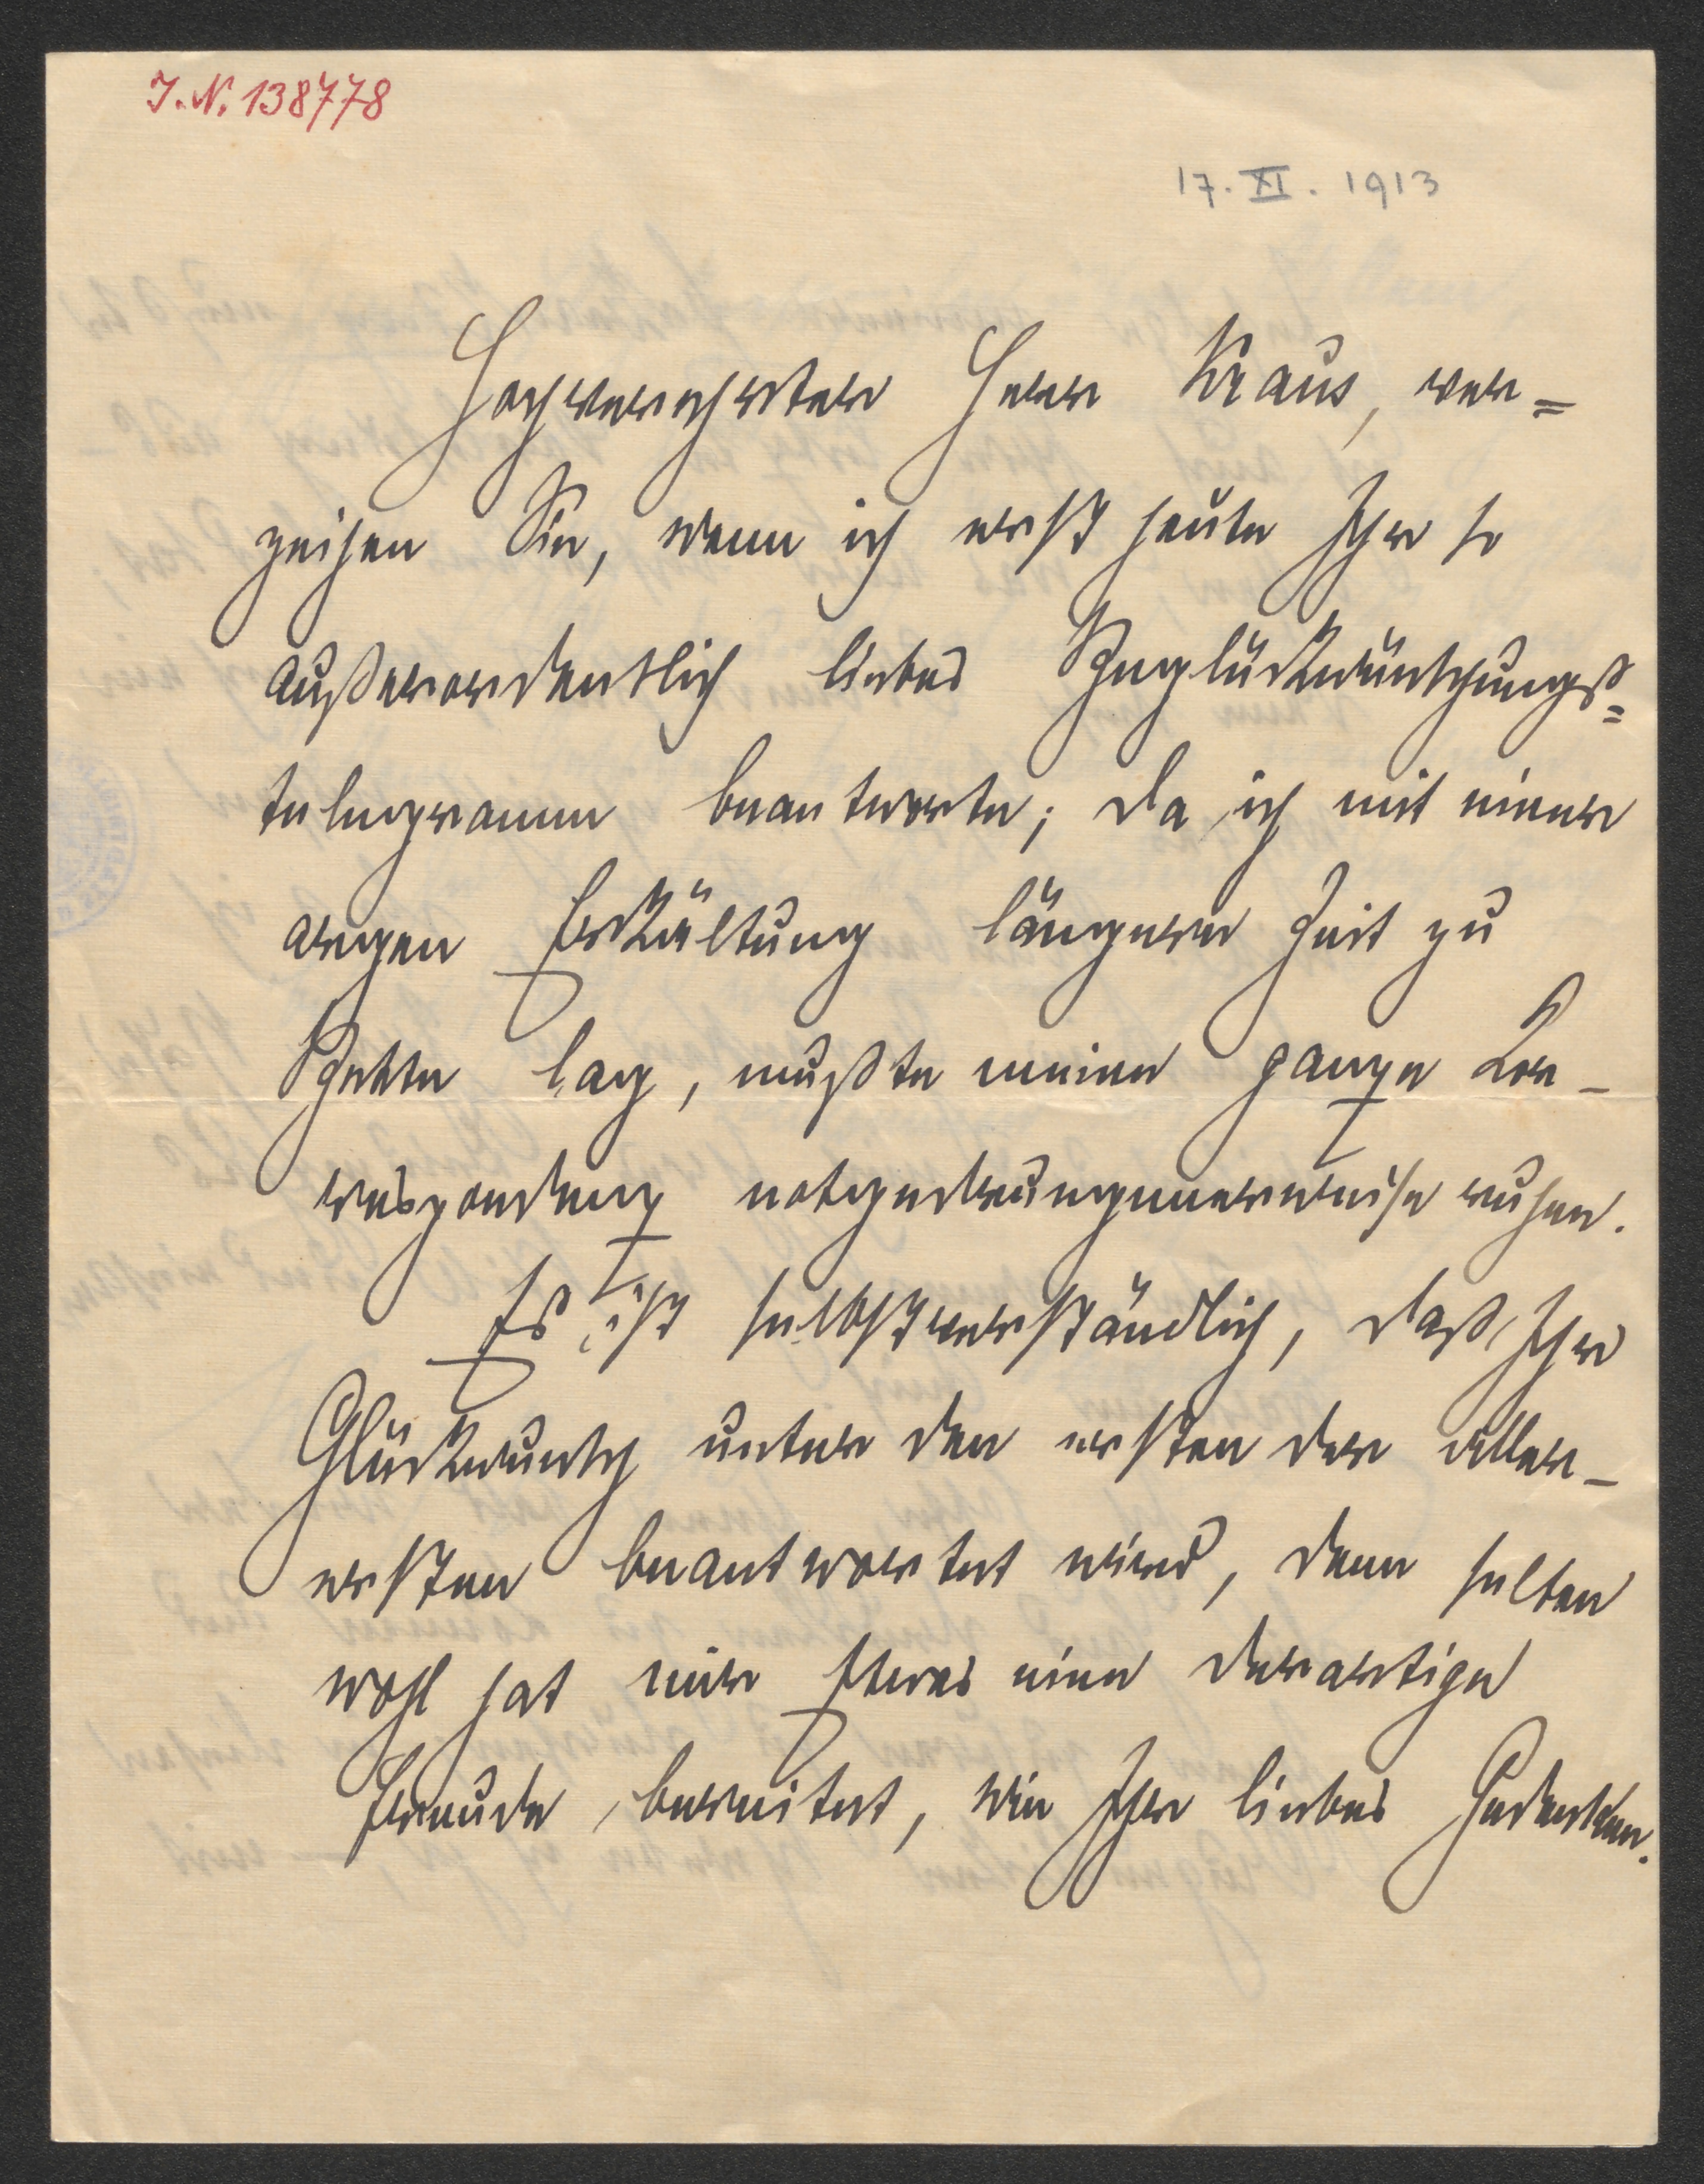 J. N. 138778
17. XI. 1913
Hochverehrter Herr Kraus, ver=
zeihen Sie, wenn ich erst heute Ihr so
außerordentlich liebes Beglückwünschungs=
telegramm beantworte; da ich mit einer
argen Erkältung längere Zeit zu
Bette lag, mußte meine ganze Kor-
respondenz notgedrungenerweise ruhen.
Es ist selbstverständlich, daß Ihr
Glückwunsch unter den ersten der aller-
ersten beantwortet wird, denn selten
wohl hat mir Etwas eine derartige
Freude bereitet, wie Ihr liebes Gedenken.